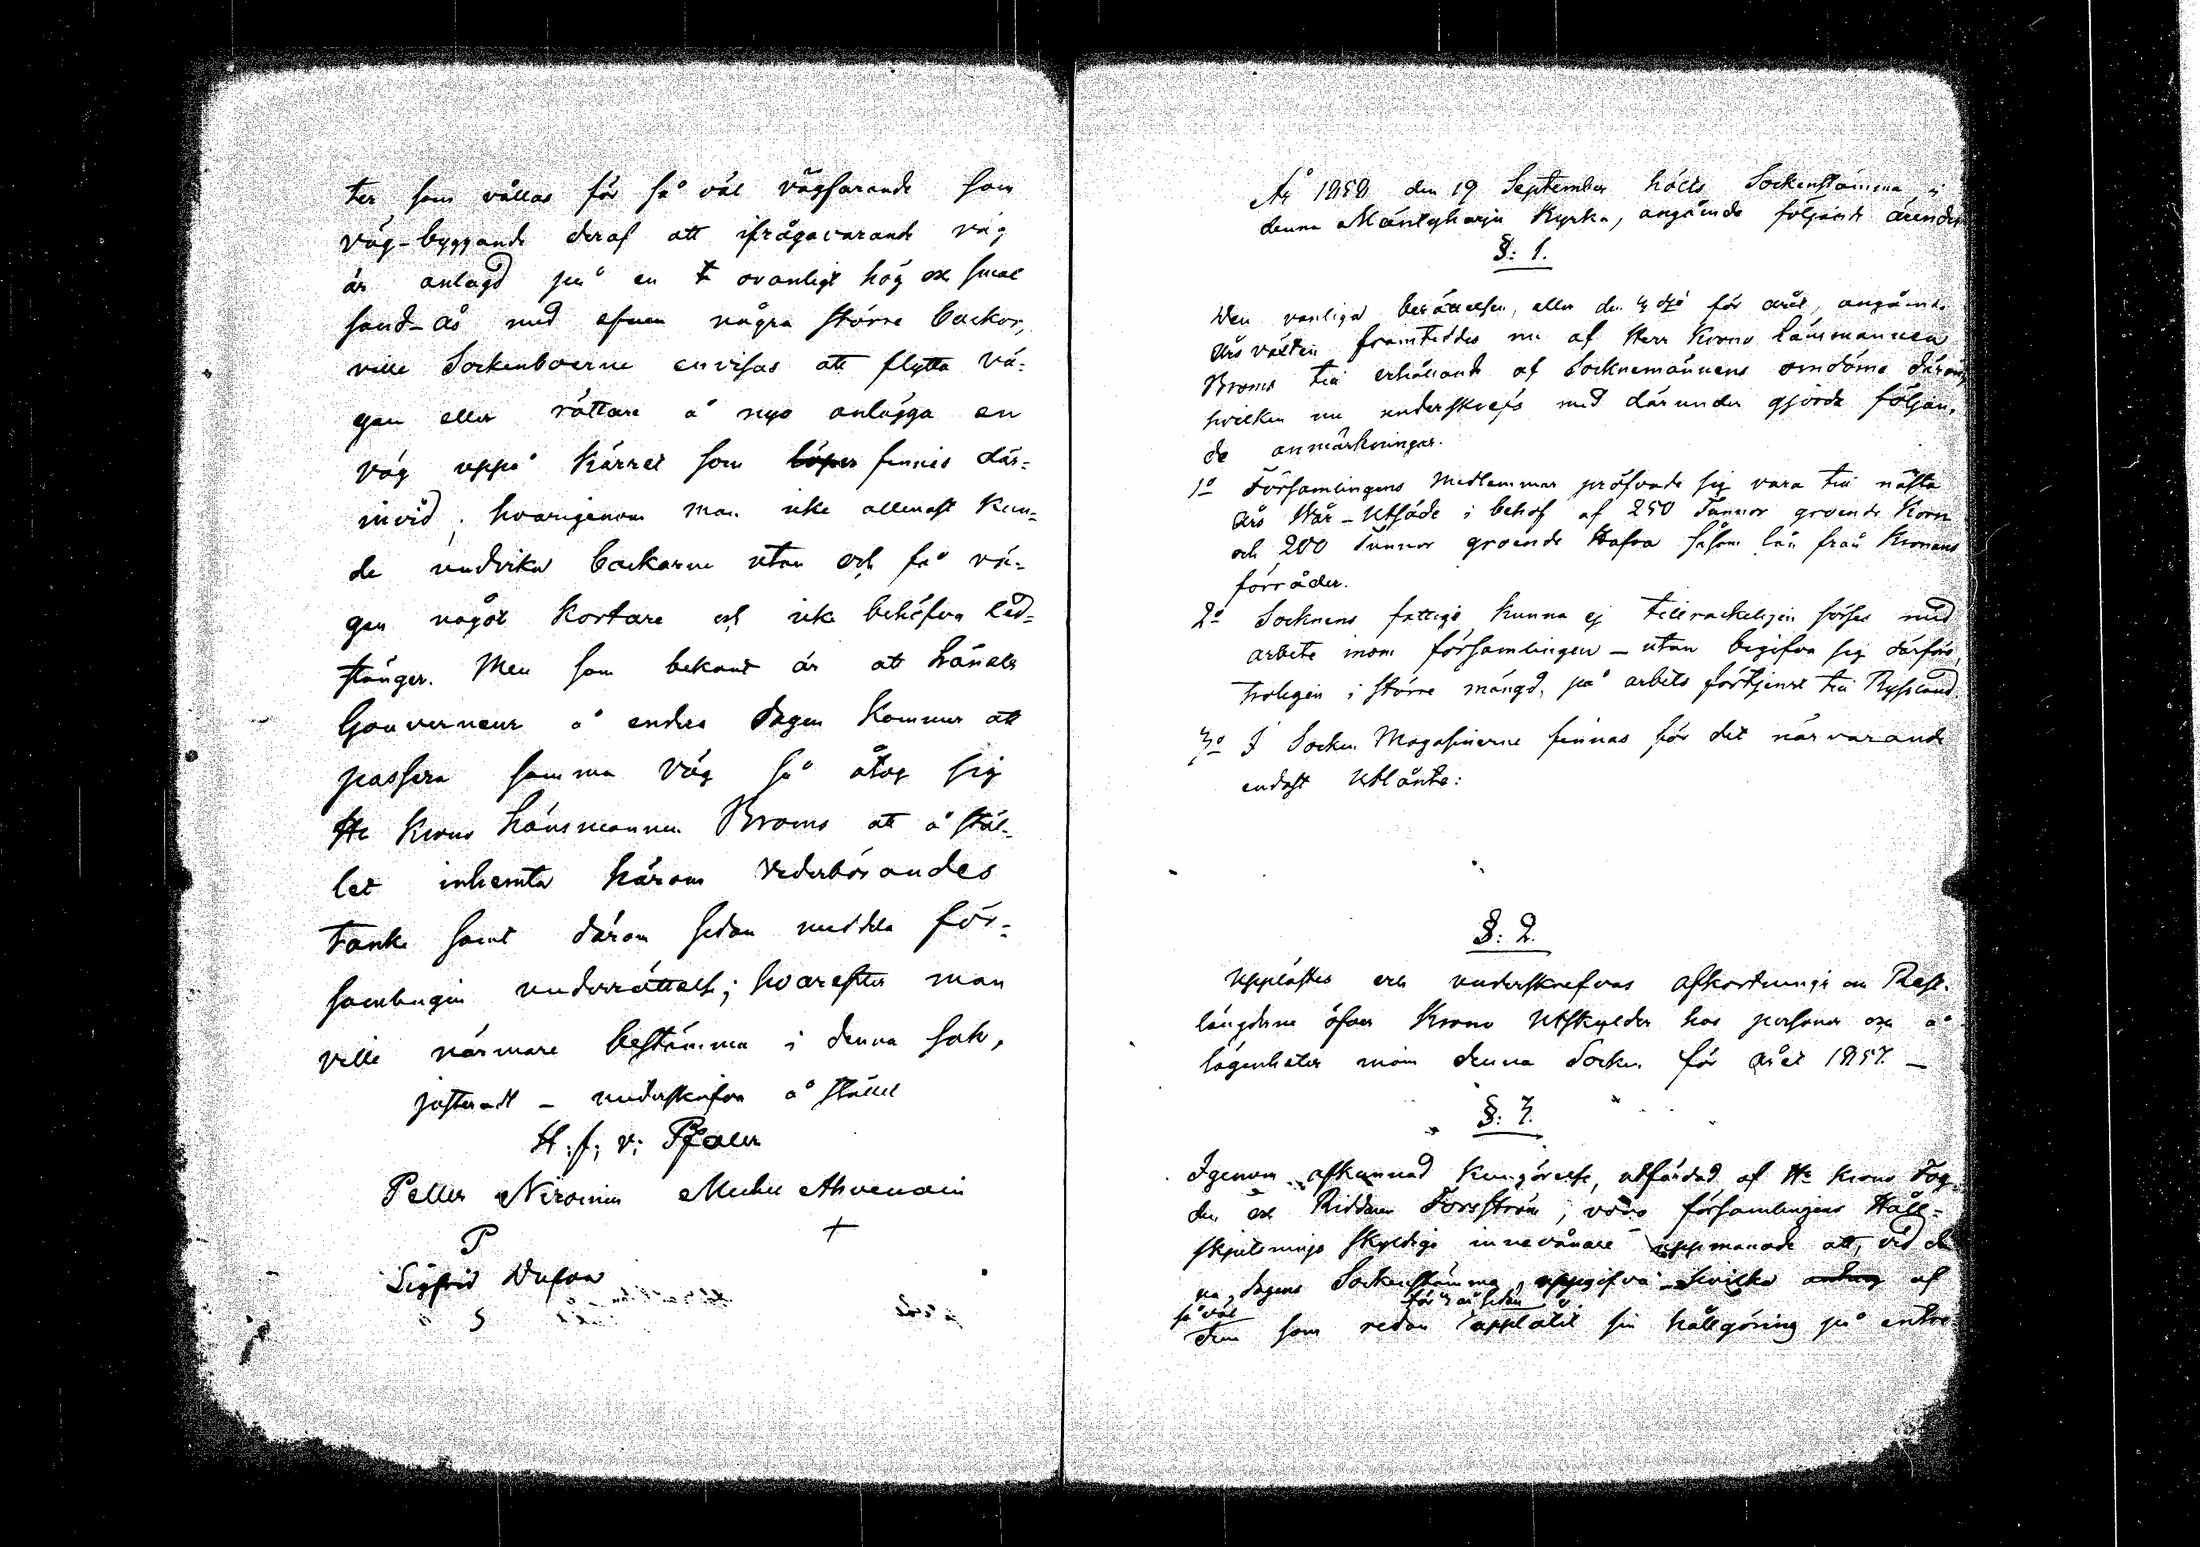 ter som vållas för så väl vägfarande som
väg-byggande deraf att ifrågavarande väg
är anlagd på en ovanligt hög och smal
sand-ås med äfven några större backor,
ville Sockenboerne envisas att flytta vä-
gen eller rättare å nyo anlägga en
väg uppå Kärret som löper finnes där-
invid, hvarigenom man icke allenast kun-
de undvika backarne utan och få vä-
gen något kortare och icke behöfva Led-
stänger. Men som bekant är att Länets
Gouverneur å endera dagen kommer att
passera samma väg så åtog sig
Hr Krono Länsmannen Broms att å stäl-
let inhemta härom vederbörandes
tanke samt därom sedan meddela för-
samlingen underrättelse; hvarefter man
ville närmare bestämma i denna sak,
justeradt – underskrifva å stället
H: f: v: Pfaler
Petter Niroinen Michel Ahvenain
P +
Sigfrid Nufva
S
År 1858 den 19 September hölls Sockenstämma i
denna Mäntyharju Kyrka, angående följande ärenden
§: 1.
Den vanliga berättelsen, eller den 3dje för året, angående
årsväxten framteddes nu af Herr Krono Länsmannen
Broms till erhållande af Socknemännens omdöme därom,
hvilken nu underskrefs med därunder gjorda följan-
de anmärkningar.
1o Församlingens Medlemmar pröfvade sig vara till nästa
års Vår-Utsäde i behof af 250 Tunnor groende Korn
och 200 Tunnor groende Hafra såsom lån från Kronans
förråder.
2o Socknens fattige kunna ej tillräckeligen förses med
arbete inom församlingen – utan begifva sig därför,
troligen i större mängd, på arbets förtjenst till Ryssland
3o I Socken Magasinerne finnas för det närvarande
endast Utlånte:
§: 2.
Upplästes och underskrefvos afkortnings och Rest-
längderne öfver Krono Utskylder hos personer och å
lägenheter inom denna Socken för året 1857. –
§: 3.
Igenom afkunnad Kungörelse, utfärdad af Hr Krono Fog-
den och Riddaren Forsström, voro församlingens Håll-
skjutsnings skyldige innevånare uppmanade att, vid den-
na dagens Sockenstämma, uppgifva hvilka af
så väl för 3 år sedan
dem som redan upplåtit sin hållgöring på entre-